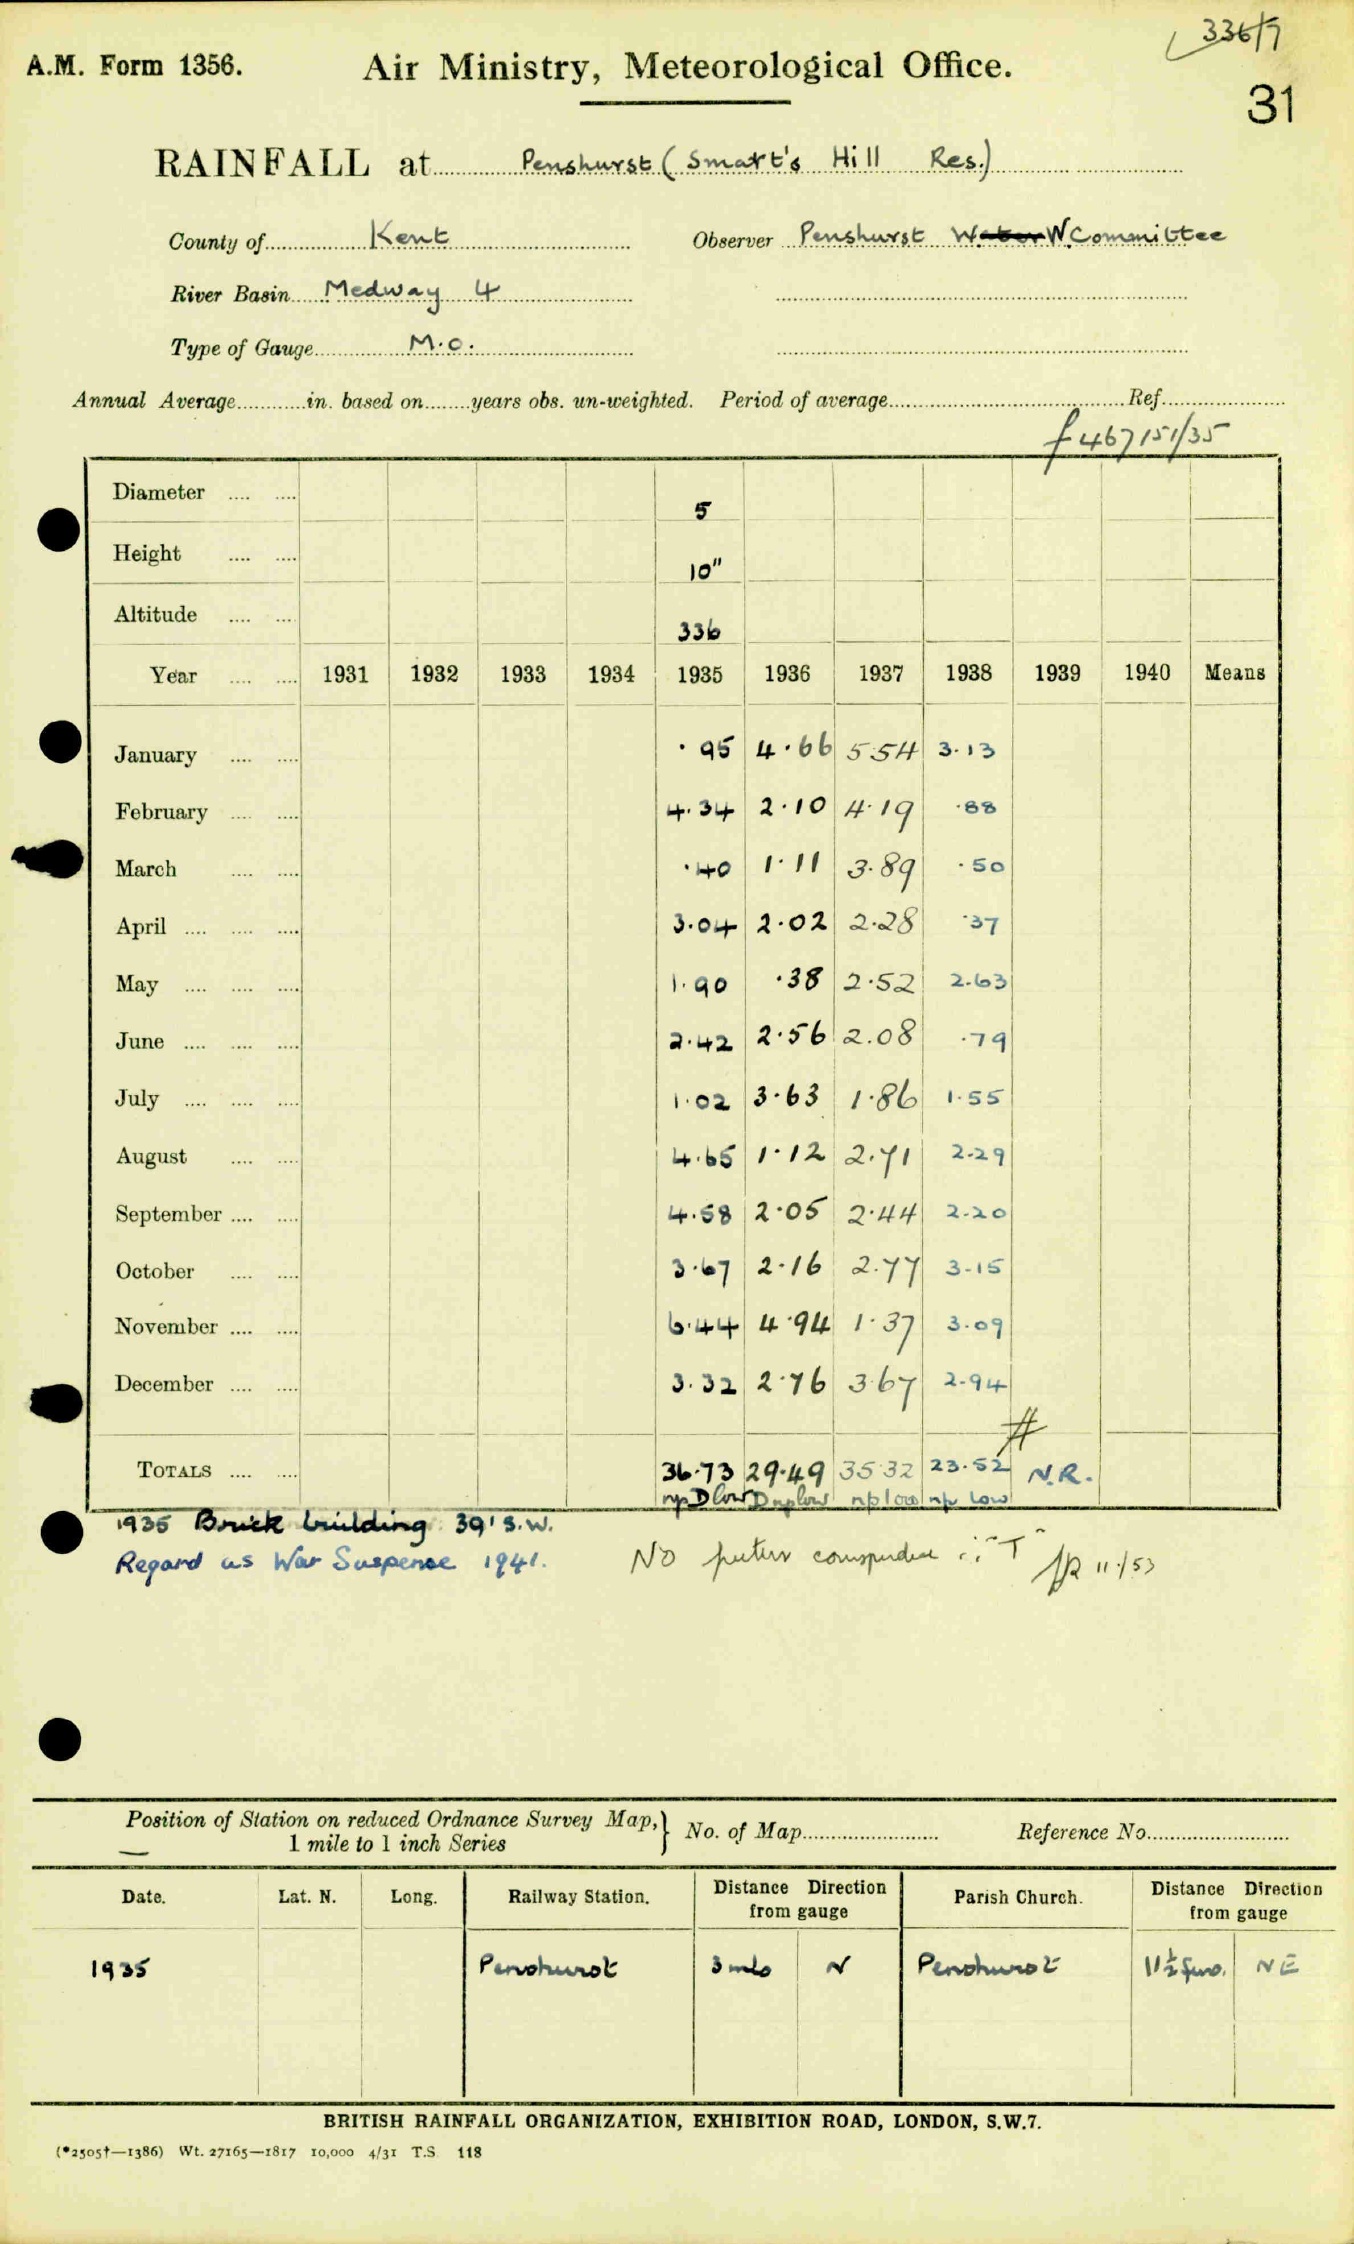 336/7
A.M. Form 1356. Air Ministry, Meteorological Office.
31
RAINFALL at Penshurst (Smart's Hill Res.)
County of Kent Observer Penshurst W. W. Committee
River Basin Medway 4
Type of Gauge M.O.
Annual Average in. based on years obs. un-weighted. Period of average Ref.
f 467151/35
Diameter .... .... 5
Height .... .... 10"
Altitude .... .... 336
Year .... .... 1931 1932 1933 1934 1935 1936 1937 1938 1939 1940 Means
January .... .... ·95 4·66 5 54 3·13
February .... .... 4·34 2·10 4·19 ·88
March .... .... ·40 1·11 3·89 ·50
April .... .... .... 3·04 2·02 2·28 ·37
May .... .... .... 1·90 ·38 2·52 2·63
June .... .... .... 2·42 2·56 2·08 ·79
July .... .... .... 1·02 3·63 1·86 1·55
August .... .... 4·65 1·12 2·71 2·29
September .... .... 4·58 2·05 2·44 2·20
October .... .... 3·67 2·16 2·77 3·15
November .... .... 6·44 4·94 1·37 3·09
December .... .... 3·32 2·76 3 67 2·94
#
TOTALS .... .... 36·73 29·49 35 32 23·52 N.R.
np D low D np low np low np low
1935 Brick building 39' S.W.
Regard as War Suspense 1941. No further ∴ "T" 11/53
Position of Station on reduced Ordnance Survey Map, 1 mile to 1 inch Series } No. of Map Reference No.
Date. Lat. N. Long. Railway Station. Distance Direction from gauge Parish Church. Distance Direction from gauge
1935 Penshurst 3 mls N Penshurst 11½ furs. NE
BRITISH RAINFALL ORGANIZATION, EXHIBITION ROAD, LONDON, S.W.7.
(*2505†—1386) Wt. 27165—1817 10,000 4/31 T.S. 118